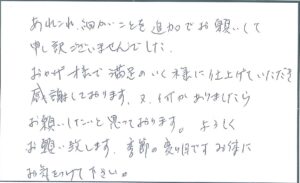 あれこれ、細かいことを追加でお願いして
申し訳ございませんでした。
おかげ様で満足のいく様に仕上げていただき
感謝しております。又、何かありましたら
お願いしたいと思っております。よろしく
お願い致します。季節の変り目です お体に
お気をつけて下さい。